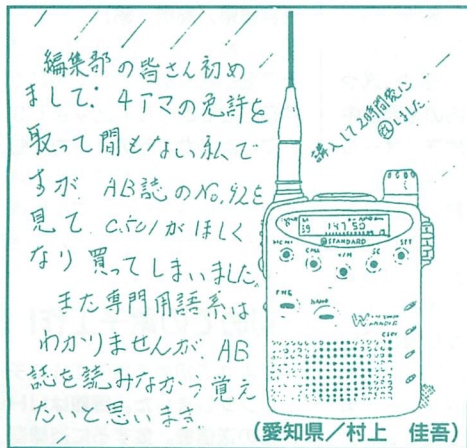 編集部の皆さん初め
まして。4アマの免許を
取って間もない私で
すが、AB誌のNo.92を
見て、C501がほしく
なり買ってしまいました。
また専門用語系は
わかりませんが、AB
誌を読みながら覚え
たいと思います。
購入して2時間後に
しました
147.50
STANDARD
MONI
CHA
V/M
SC
SET
FNC
BAND
W
(愛知県/村上 佳吾)